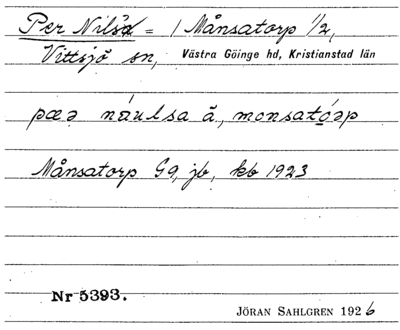 Per Nils's = / Månsatorp 1/2,
Vittsjö sn, Västra Göinge hd, Kristianstad län
pæə náulsa å, monsatóəp
Månsatorp Gg, jb, kb 1923
Nr 5393.
JÖRAN SAHLGREN 1926